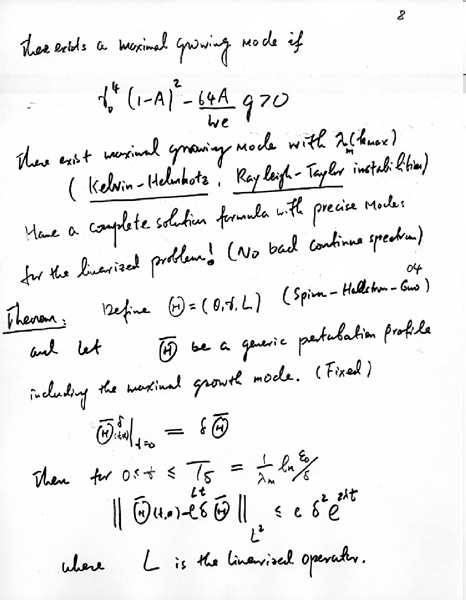 8
There exists a maximal growing mode if
γ₀⁴ (1-A)² - 64A/We g > 0
There exist maximal growing mode with λₘ(kmax)
( Kelvin-Helmhotz , Rayleigh-Taylor instabilities)
Have a complete solution formula with precise modes
for the linearized problem! (No bad continue spectrum)
Theorem: Define Ⓗ = (θ, γ, L) (Spirn-Hallstrom-Guo) 04
and let Ⓗ̄ be a generic perturbation profile
including the maximal growth mode. (Fixed)
Ⓗ̄^δ(t,x)|_{t=0} = δ Ⓗ̄
Then for 0 ≤ t ≤ T_δ = 1/λₘ ln ε₀/δ
|| Ⓗ̄(t,·) - e^{Lt} δ Ⓗ̄ ||_{L²} ≤ c δ² e^{2λt}
where L is the linearized operator.